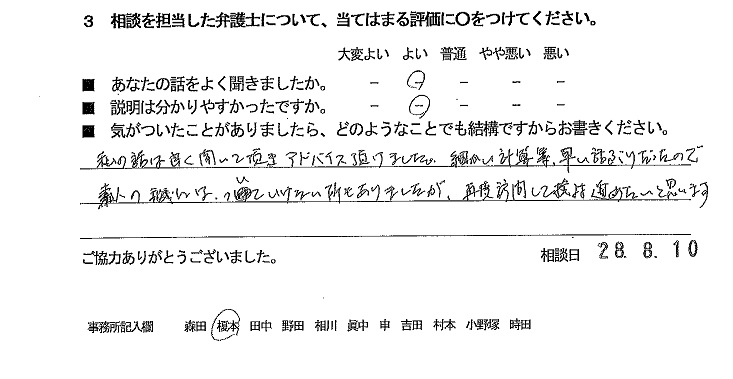 3 相談を担当した弁護士について、当てはまる評価に○をつけてください。
大変よい よい 普通 やや悪い 悪い
■ あなたの話をよく聞きましたか。 － － － － －
■ 説明は分かりやすかったですか。 － － － － －
■ 気がついたことがありましたら、どのようなことでも結構ですからお書きください。
私の話は良く聞いて頂きアドバイス頂けました。細かい計算等、早い話ぶりだったので
素人の私には、ついていけない所もありましたが、再度訪問して 進めたいと思います
ご協力ありがとうございました。 相談日 28. 8. 10
事務所記入欄 森田 榎本 田中 野田 相川 眞中 申 吉田 村本 小野塚 時田